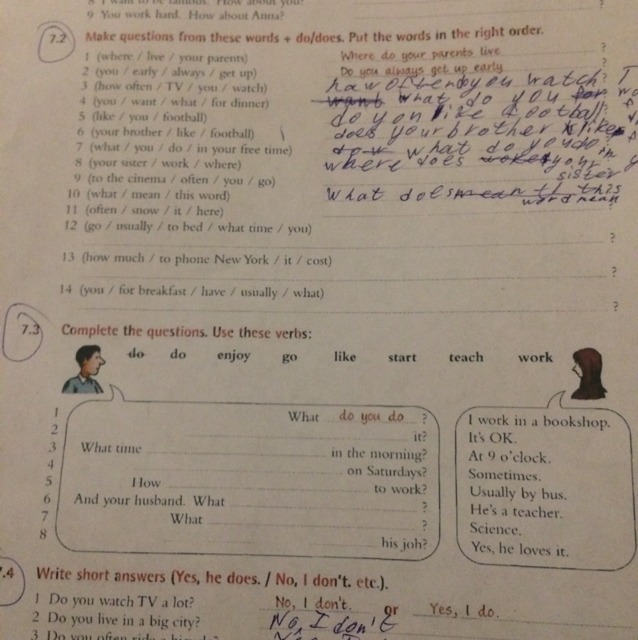 9 You work hard. How about Anna?
7.2 Make questions from these words + do/does. Put the words in the right order.
1 (where / live / your parents) Where do your parents live ?
2 (you / early / always / get up) Do you always get up early ?
3 (how often / TV / you / watch) how often do you watch T
4 (you / want / what / for dinner) want what do you for
5 (like / you / football) do you like football
6 (your brother / like / football) does your brother like
7 (what / you / do / in your free time) what do you do in
8 (your sister / work / where) where does your
9 (to the cinema / often / you / go) sister
10 (what / mean / this word) What does mean this
word mean
11 (often / snow / it / here) ?
12 (go / usually / to bed / what time / you)
?
13 (how much / to phone New York / it / cost)
?
14 (you / for breakfast / have / usually / what)
?
7.3 Complete the questions. Use these verbs:
do do enjoy go like start teach work
1 What do you do ? I work in a bookshop.
2 it? It's OK.
3 What time in the morning? At 9 o'clock.
4 on Saturdays? Sometimes.
5 How to work? Usually by bus.
6 And your husband. What ? He's a teacher.
7 What ? Science.
8 his job? Yes, he loves it.
7.4 Write short answers (Yes, he does. / No, I don't. etc.).
1 Do you watch TV a lot? No, I don't. or Yes, I do.
2 Do you live in a big city? No, I don't
3 Do you often ride a